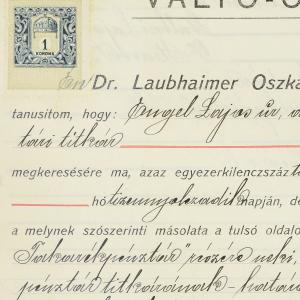 VÁLTÓ-Ó
1
KORONA
Én Dr. Laubhaimer Oszká
tanusitom, hogy: Engel Lajos úr, a
tári titkár
megkeresésére ma, azaz egyezerkilenczszáz
hó tizennyolczadik napján, de
a melynek szószerinti másolata a tulsó oldalo
Takarékpénztár" részére neki,
pénztár titkárának - határ